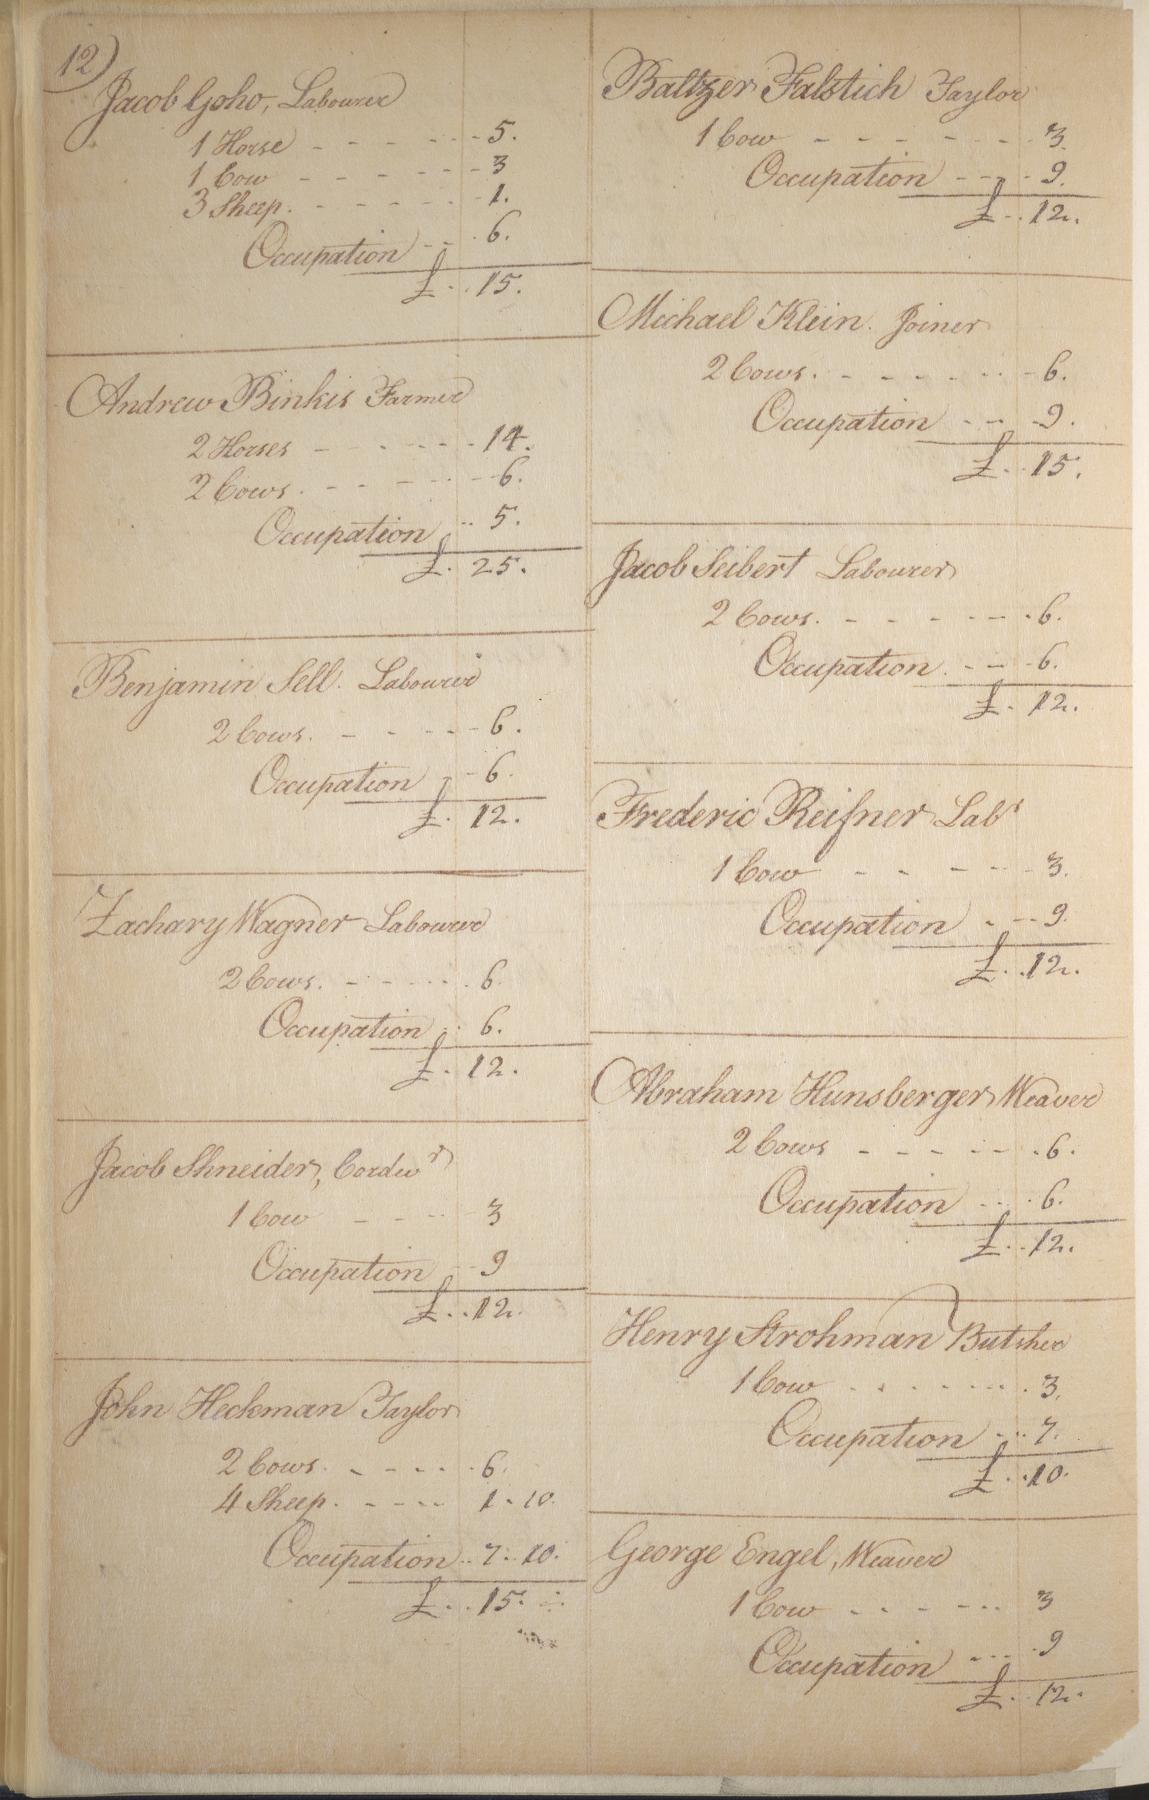 12)
Jacob Goho, Labourer
1 Horse - - - - - - 5.
1 Cow - - - - - - - 3
3 Sheep. - - - - - - 1.
Occupation - - . 6.
£ . . 15.
Andrew Binkis Farmer
2 Horses - - - - - 14.
2 Cows. - - - - - - 6.
Occupation .. 5.
£. 25.
Benjamin Sell. Labourer
2 Cows. - - - - - 6.
Occupation - 6.
£. 12.
Zachary Wagner Labourer
2 Cows. - - - - . 6
Occupation . . 6.
£. 12.
Jacob Shneider, Cordwr
1 Cow - - - - 3
Occupation - 9
£. . 12.
John Heckman Taylor
2 Cows. - - - - . 6.
4 Sheep. - - - - 1 . 10.
Occupation .. 7. 10.
£. . 15.
Baltzer Falstich Taylor
1 Cow - - - - - - . 3.
Occupation - - - 9.
£ - . 12.
Michael Klein. Joiner
2 Cows. - - - - - - 6.
Occupation - - - 9.
£. . 15.
Jacob Seibert Labourer
2 Cows. - - - - - . 6.
Occupation. - - - 6.
£. . 12.
Frederic Reifner Labr
1 Cow - - - - - - 3.
Occupation - - - 9.
£. . 12.
Abraham Hunsberger Weaver
2 Cows - - - - - . 6.
Occupation . . . . 6.
£. . 12.
Henry Strohman Butsher
1 Cow . . . . . . . 3.
Occupation - . . 7.
£. . 10.
George Engel, Weaver
1 Cow . . - - - . . 3
Occupation - . . . 9
£. . 12.